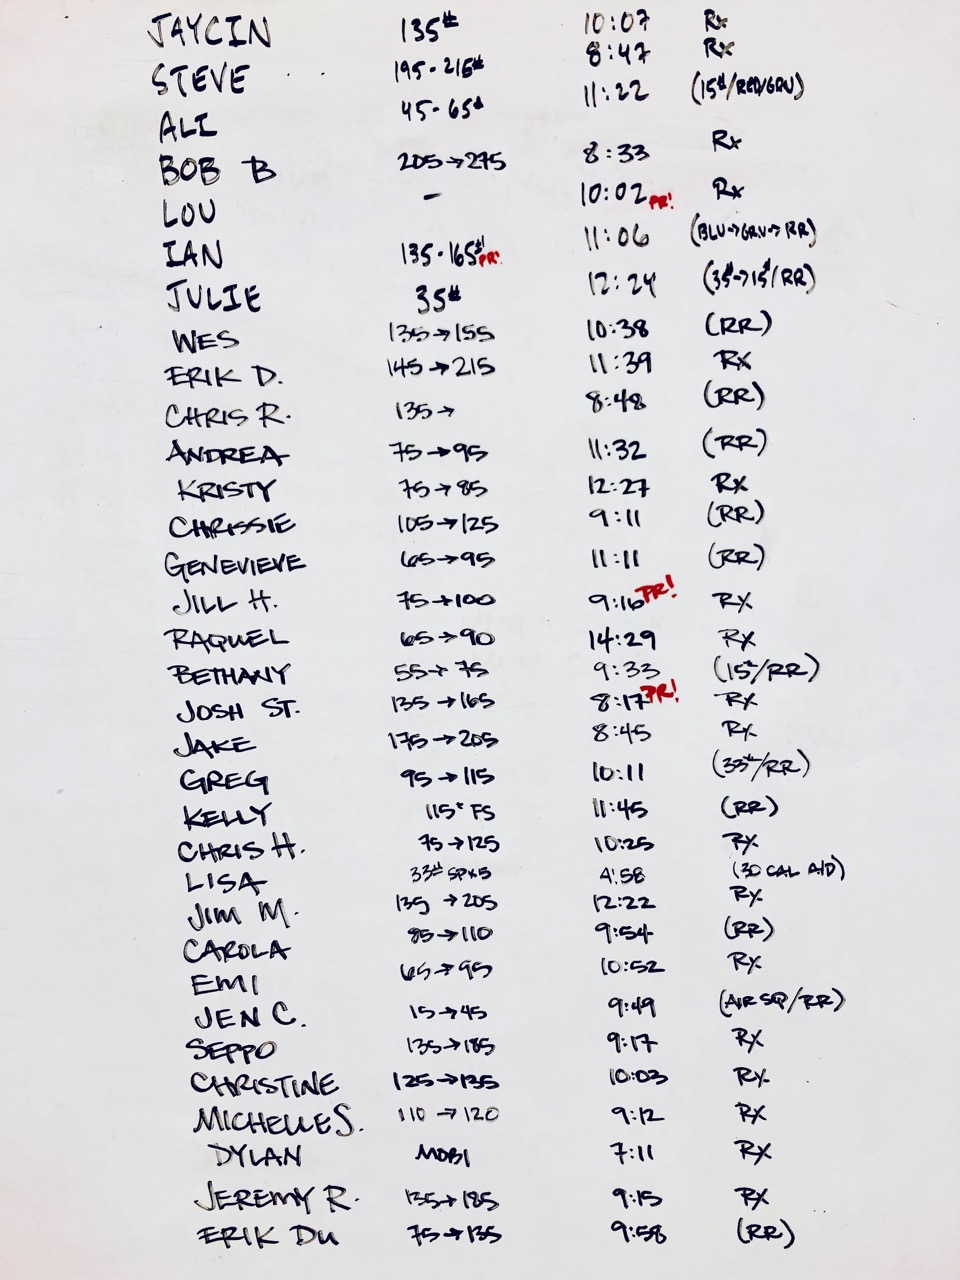 JAYCIN 135# 10:07 Rx
STEVE 195-215# 8:47 Rx
ALI 45-65# 11:22 (15#/RED/GRN)
BOB B 205→275 8:33 Rx
LOU - 10:02 PR! Rx
IAN 135-165# PR! 11:06 (BLU→GRN→RR)
JULIE 35# 12:24 (35#→15#/RR)
WES 135→155 10:38 (RR)
ERIK D. 145→215 11:39 RX
CHRIS R. 135→ 8:48 (RR)
ANDREA 75→95 11:32 (RR)
KRISTY 75→85 12:27 RX
CHRISSIE 105→125 9:11 (RR)
GENEVIEVE 65→95 11:11 (RR)
JILL H. 75→100 9:16 PR! RX
RAQUEL 65→90 14:29 RX
BETHANY 55→75 9:33 (15#/RR)
JOSH ST. 135→165 8:17 PR! RX
JAKE 175→205 8:45 RX
GREG 95→115 10:11 (33#/RR)
KELLY 115# FS 11:45 (RR)
CHRIS H. 75→125 10:25 RX
LISA 33# SPX5 4:58 (30 CAL A/D)
JIM M. 135→205 12:22 RX
CAROLA 85→110 9:54 (RR)
EMI 65→95 10:52 RX
JEN C. 15→45 9:49 (AIR SQ/RR)
SEPPO 135→185 9:17 RX
CHRISTINE 125→135 10:03 RX
MICHELLE S. 110→120 9:12 RX
DYLAN MOBI 7:11 RX
JEREMY R. 135→185 9:15 RX
ERIK DU 75→135 9:58 (RR)